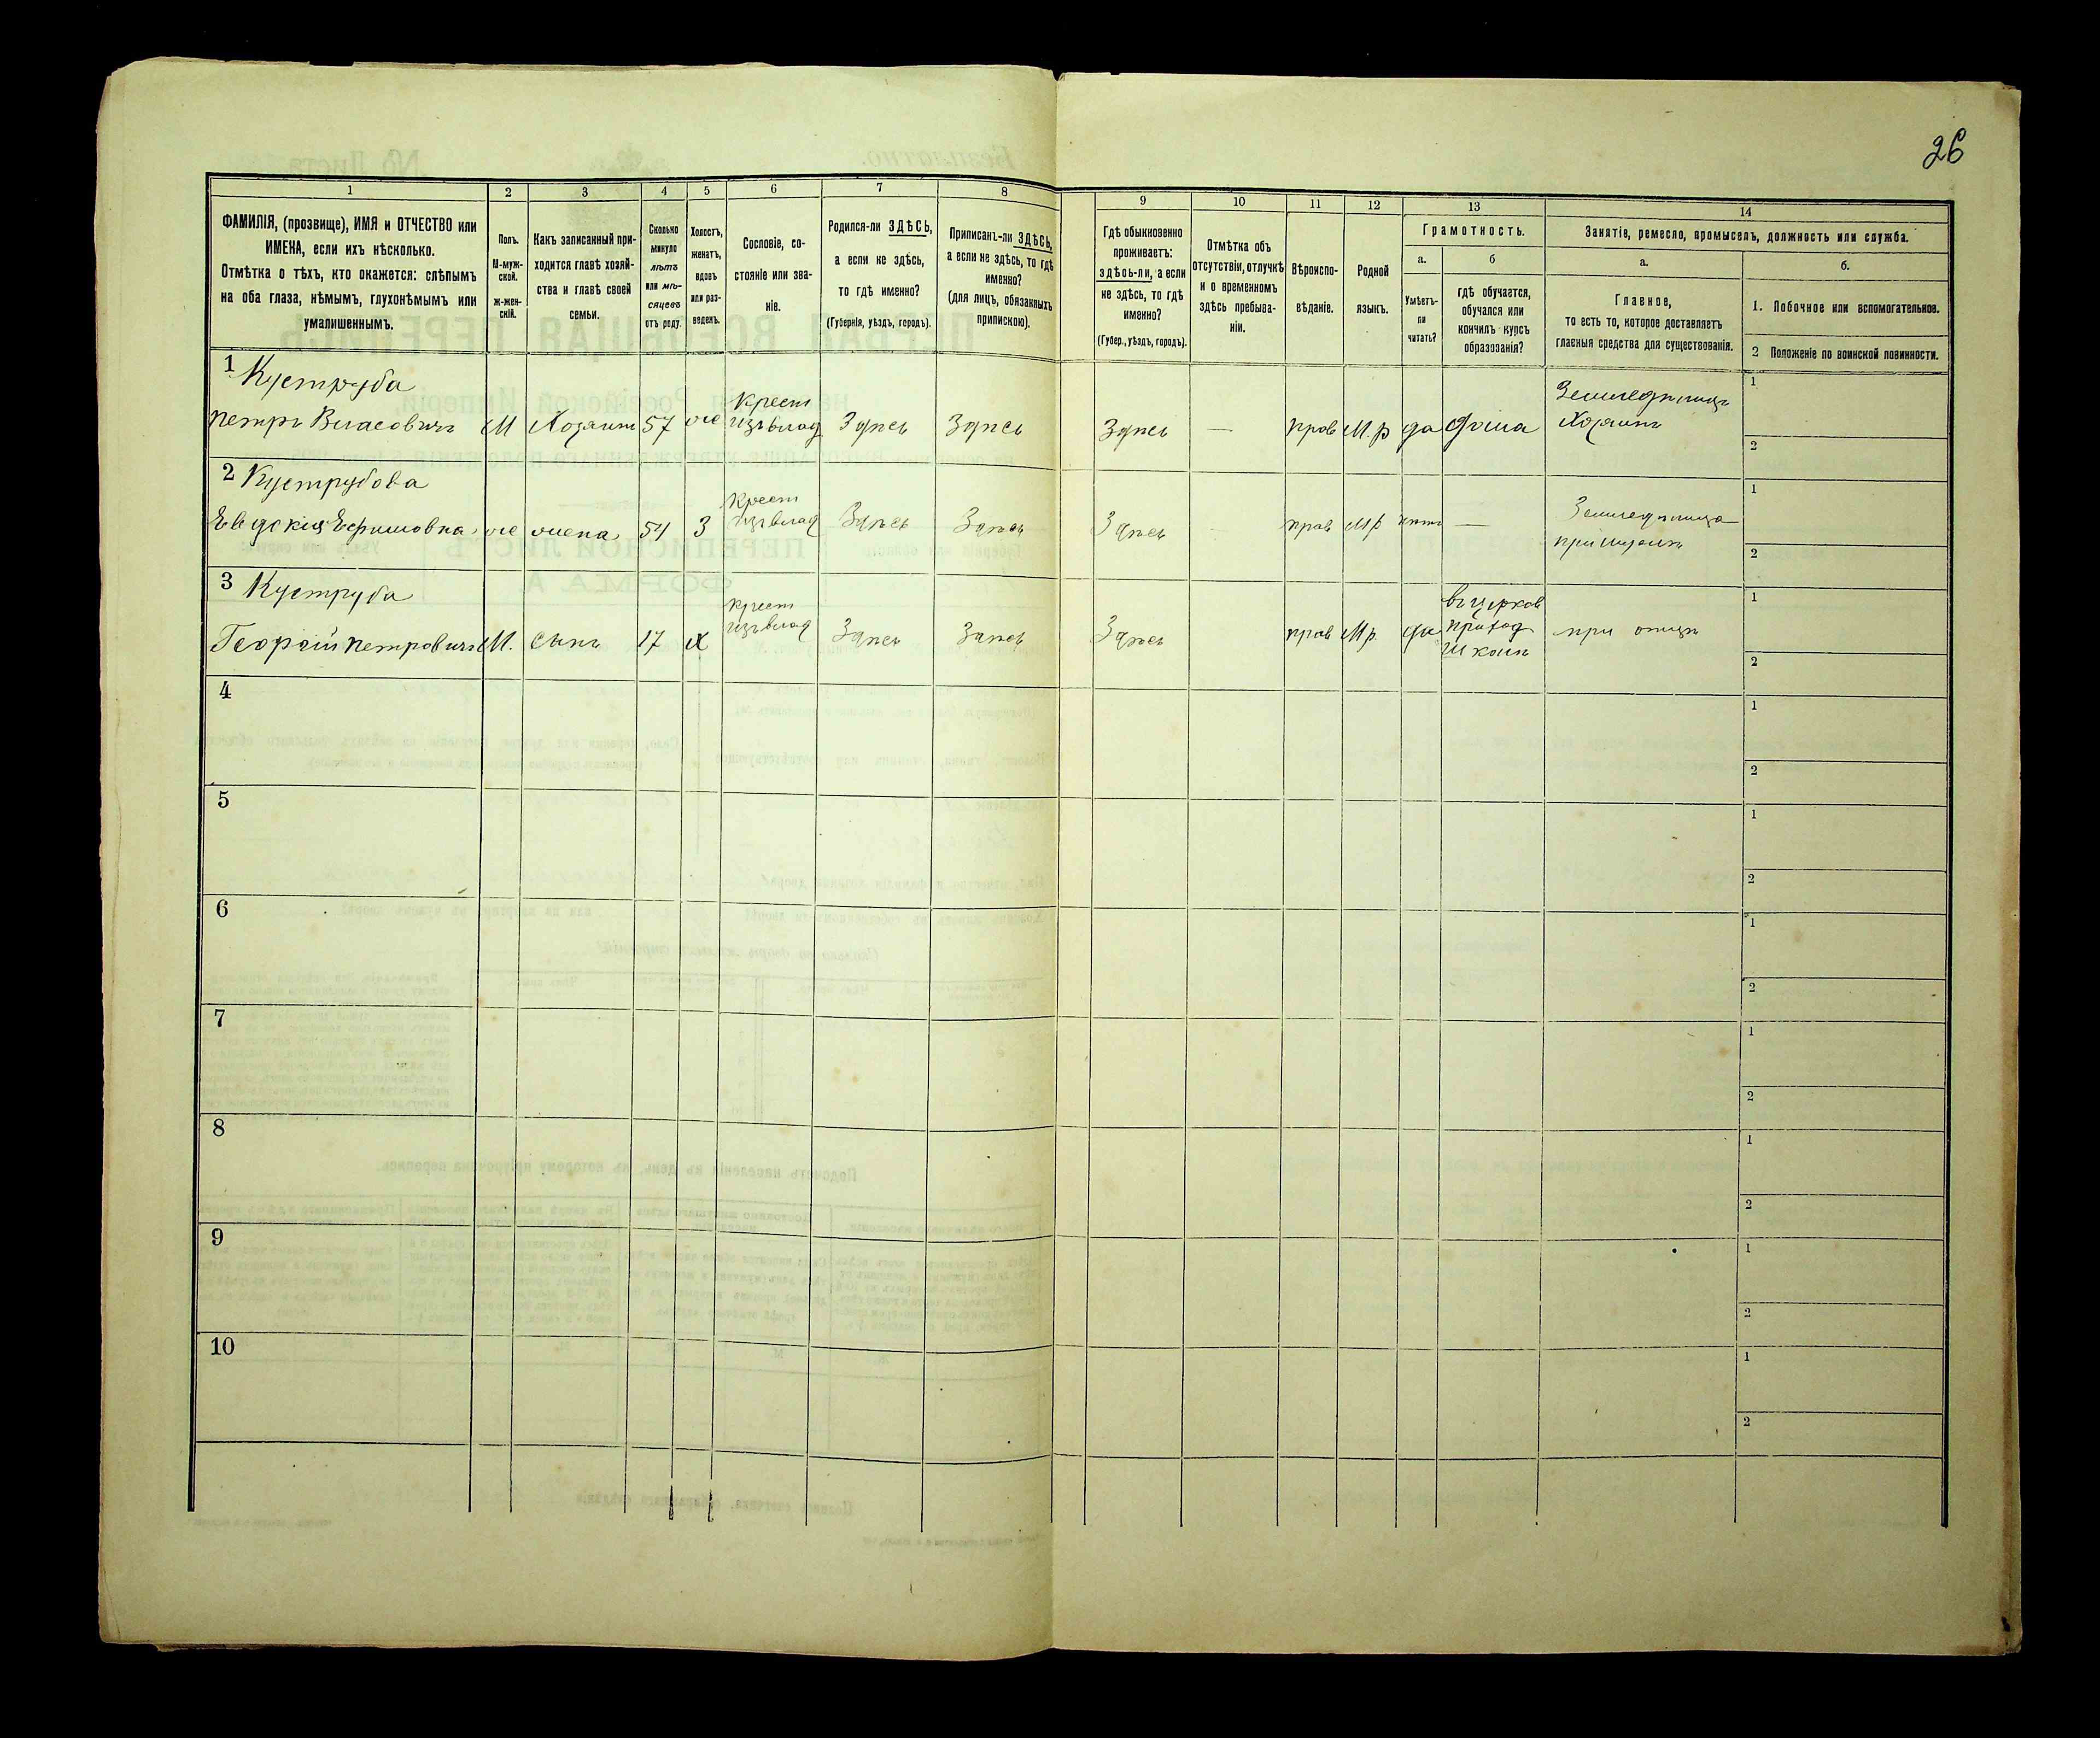 26
1 2 3 4 5 6 7 8 9 10 11 12 13 14
ФАМИЛІЯ, (прозвище), ИМЯ и ОТЧЕСТВО или
ИМЕНА, если ихъ нѣсколько.
Отмѣтка о тѣхъ, кто окажется: слѣпымъ
на оба глаза, нѣмымъ, глухонѣмымъ или
умалишеннымъ.
Полъ.
М-муж-
ской.
ж-жен-
скій.
Какъ записанный при-
ходится главѣ хозяй-
ства и главѣ своей
семьи.
Сколько
минуло
лѣтъ
или мѣ-
сяцевъ
отъ роду.
Холостъ,
женатъ,
вдовъ
или раз-
веденъ.
Сословіе, со-
стояніе или зва-
ніе.
Родился-ли ЗДѢСЬ,
а если не здѣсь,
то гдѣ именно?
(Губернія, уѣздъ, городъ).
Приписанъ-ли ЗДѢСЬ,
а если не здѣсь, то гдѣ
именно?
(для лицъ, обязанныхъ
припискою).
Гдѣ обыкновенно
проживаетъ:
здѣсь-ли, а если
не здѣсь, то гдѣ
именно?
(Губер., уѣздъ, городъ).
Отмѣтка объ
отсутствіи, отлучкѣ
и о временномъ
здѣсь пребыва-
ніи.
Вѣроиспо-
вѣданіе.
Родной
языкъ.
Грамотность.
а.
Умѣетъ-
ли
читать?
б
гдѣ обучается,
обучался или
кончилъ курсъ
образованія?
Занятіе, ремесло, промыселъ, должность или служба.
а.
Главное,
то есть то, которое доставляетъ
главныя средства для существованія.
б.
1. Побочное или вспомогательное.
2 Положеніе по воинской повинности.
1 Куструба
Петръ Власовичъ М Хозяинъ 57 же Крест изъ влад Здѣсь Здѣсь Здѣсь — прав М.р да дома Земледѣлецъ Хозяинъ
1
2
2 Куструбова
Евдокія Ефимовна же жена 54 З Крест изъ влад Здѣсь Здѣсь Здѣсь — прав М.р нѣтъ —
1
2
3 Куструба
Георгій Петровичъ М. сынъ 17 Х крест изъ влад Здѣсь Здѣсь Здѣсь прав М.р. да въ церков приход школѣ при отцѣ
1
2
4
1
2
5
1
2
6
1
2
7
1
2
8
1
2
9
1
2
10
1
2